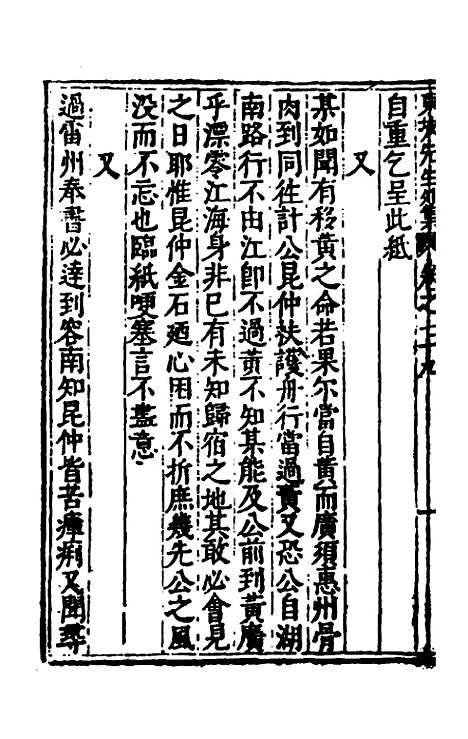 東坡先生外集卷之七十九
自重乞呈此紙
又
某如聞有移黃之命若果尒當自黃而廣須惠州骨
肉到同徃計公昆仲扶護舟行當過黃又恐公自湖
南路行不由江即不過黃不知某能及公前到黃廣
乎漂零江海身非已有未知歸宿之地其敢必會見
之日耶惟昆仲金石廼心困而不折庶幾先公之風
没而不忘也臨紙哽塞言不盡意
又
過雷州奉書必達到容南知昆仲皆苦瘴痢又聞尋